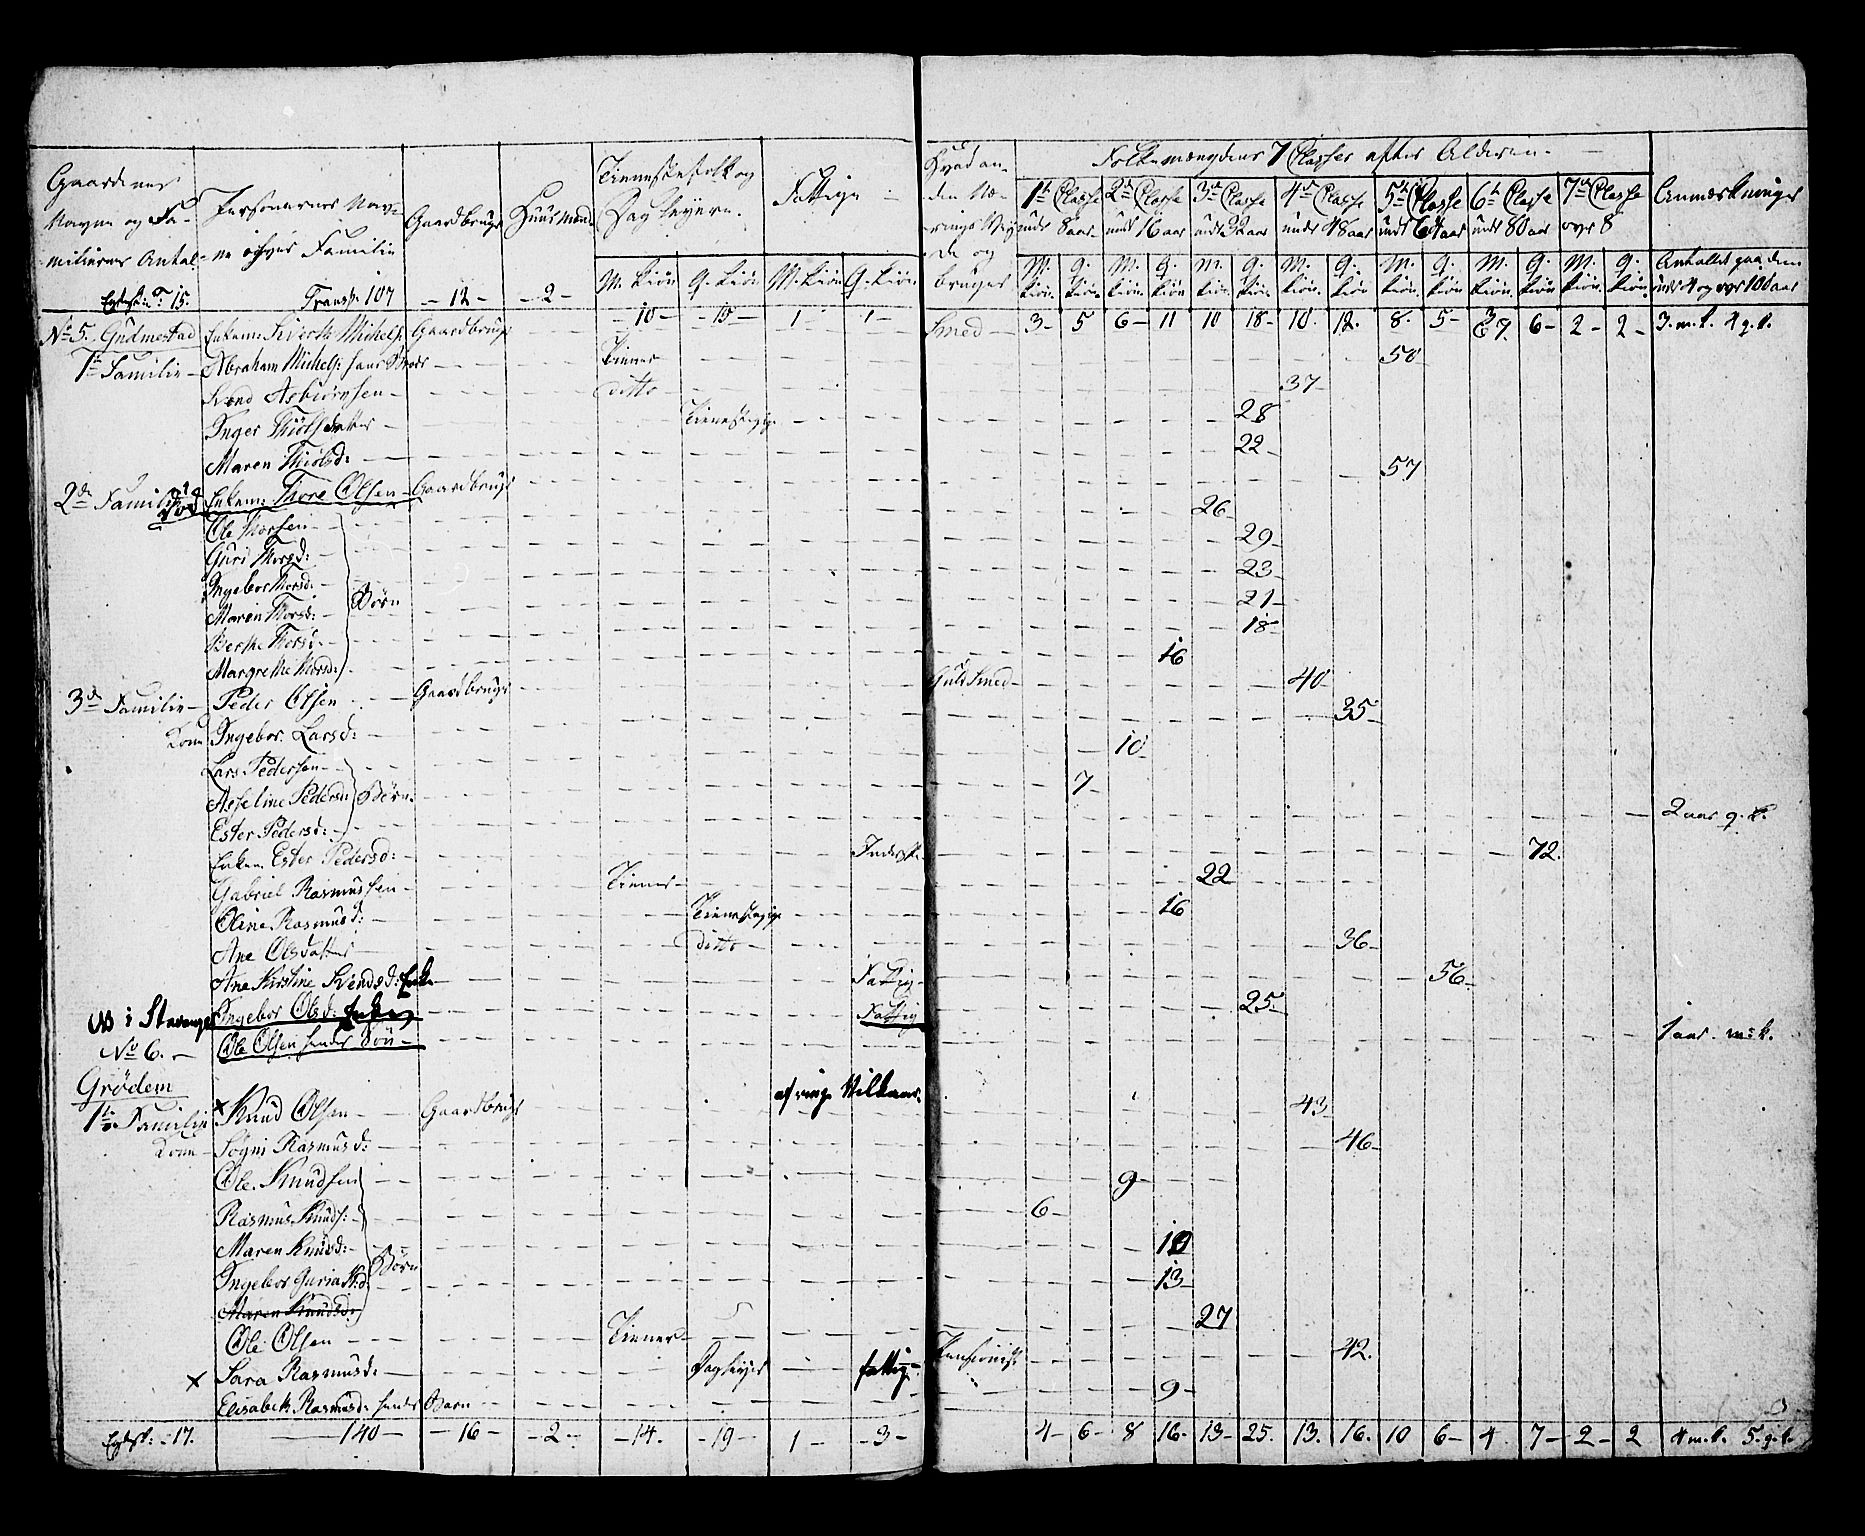 Folkemængdens 7 Classer efter Alderen.
Gaardenes Navne og Familiernes Antal
Personernes Navne i hver Familie
Gaardbruger
Huusmænd
Tienestefolk og Dagleyere.
Fattige
Hvad anden Næringsvey de og bruger
1te Classe under 8 aar
2den Classe under 16 aar
3die Classe under 32 aar
4de Classe under 48 aar
5te Classe under 64 aar
6te Classe under 80 aar
7de Classe over 8
Anmærkninger
M. kiøn Q. kiøn M. kiøn Q. kiøn
M. kiøn Q. kiøn M. kiøn Q. kiøn M. kiøn Q. kiøn M. kiøn Q. kiøn M. kiøn Q. kiøn M. kiøn Q. kiøn M. kiøn Q. kiøn
Transp. 107 - 12 - - 2 - - 10 - - 15 - 1 - 1 - 3 - 5 6 - 11 10 18 - 10. 12. 8. 5 - 6 - 2 - 2 - 3. m. k. 4 q. k.
No 5. Gudmestad Enkem: Sivert Michels: Gaardbruger Smed -
1te Familie - Abraham Michels: hans Broder Tiener 50 -
Svend Asbiørnsen - ditto - 37 -
Inger Thiølsdatter - Tienestepige 28
Maren Thiølsd: 22 -
2den Familie Enkem: Thore Olsen - Gaardbruger 57
Ole Thorsen 26 -
Guri Thorsd: 29 -
Ingebor Thorsd: 23 -
Maren Thorsd: Børn 21 -
Berthe Thorsd: 18 -
Margrethe Thorsd: 16
3die Familie - Peder Olsen Gaardbruger Guldsmed - 40
Kone Ingebor Larsd: 35 -
Lars Pedersen - 10 -
Asseline Pedersd: Børn. 7 -
Ester Pedersd: - 2 aar q. k.
Enken Ester Pedersd: - Inderste 72.
Gabriel Rasmussen - Tiener - 22
Oline Rasmusd: Tienestepige 16
Ane Olsdatter ditto - 36 -
Ane Kirstine Svendsd: Enke Fattig - 56 -
NB i Stavanger Ingebor Olsd: Enke Fattig 25 -
No 6. - Ole Olsen hendes Søn - 1 aar. m: k.
Grødem
1te Familie × Knud Olsen Gaardbruger af ringe Vilkaar. 43 -
Kone - Søgni Rasmusd: 46 -
Ole Knudsen 9 -
Rasmus Knuds: - 6 -
Maren Knudsd: - 10
Ingebor Guria K:d: Børn 13 -
Maren Knudsd:
Ole Olsen Tiener 27
× Sara Rasmusd: Dagleyer fattig. Pensionist 42.
Elisabeth Rasmusd: hendes Barn 9 -
17. 140 - - 16 - - 2 - - 14. - 19 - 1 - - 3 - 4 - 6 - 8 16 - 13 - 25. 13. 16. 10 6 - 4. 7 - 2 - 2 4 m. k. 5. q. k.